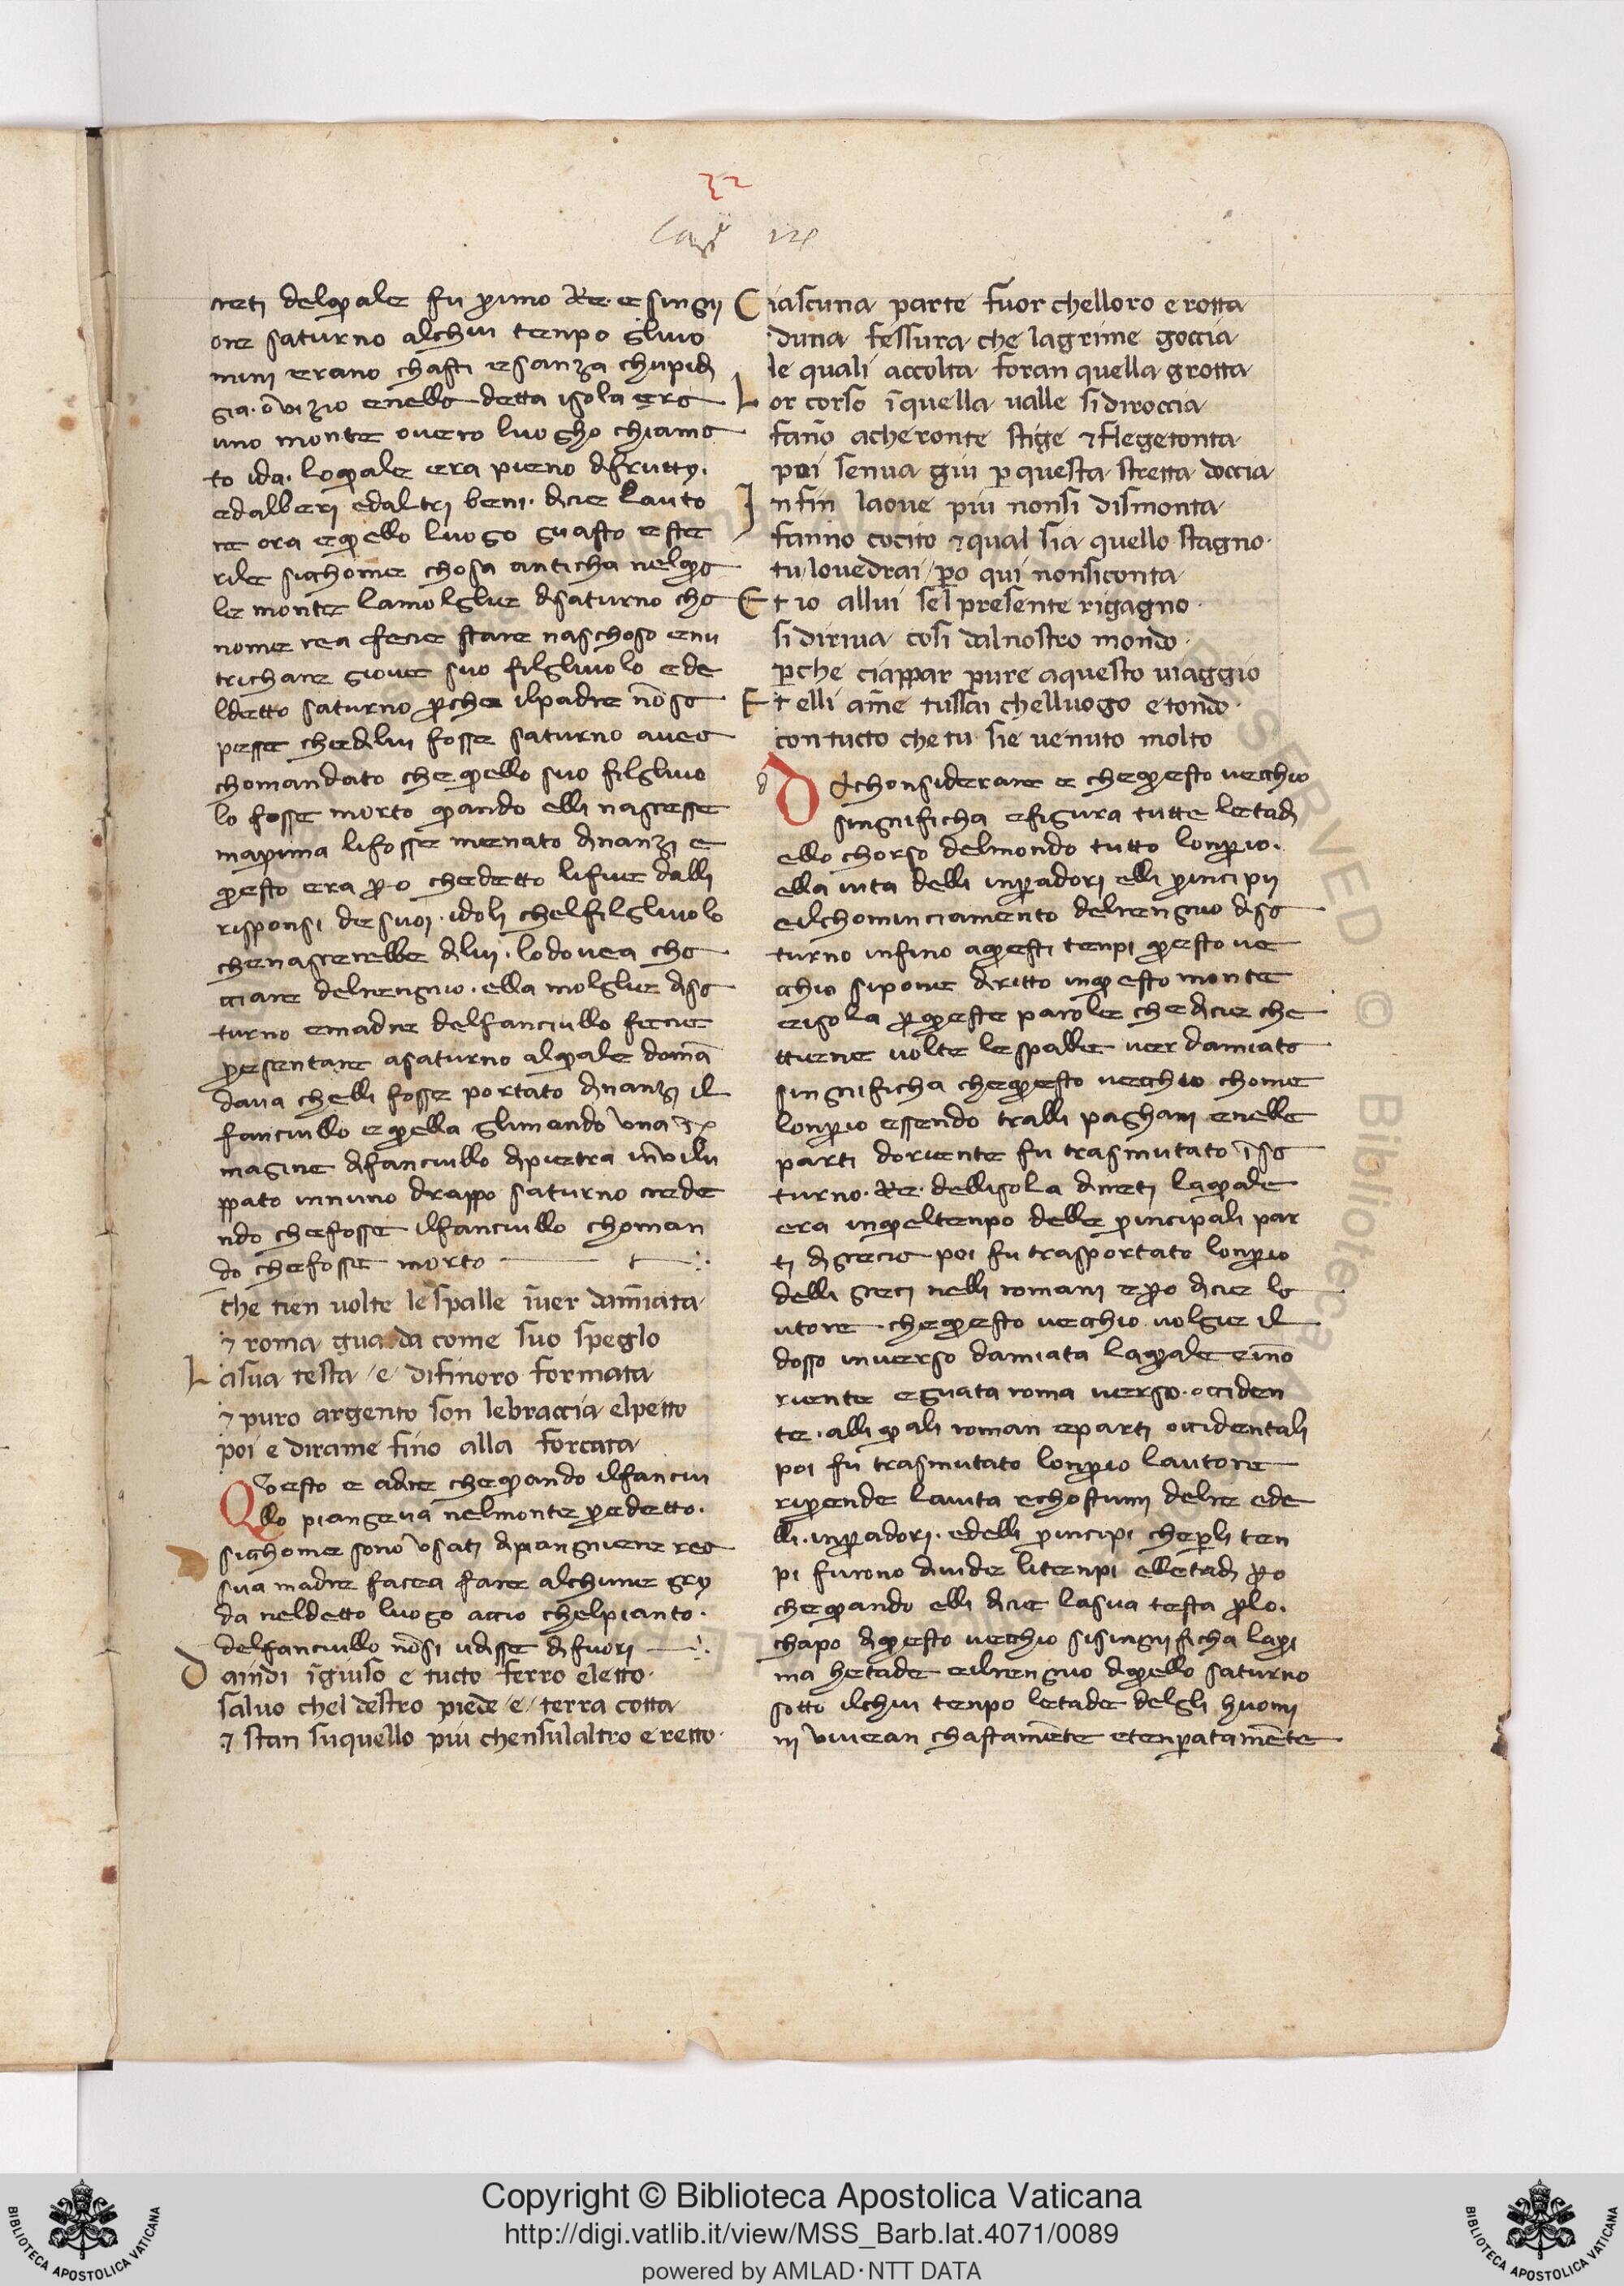 32
Cap° xiiii
creti delquale fu primo Re. e singn
ore saturno alchui tenpo gliuo
mini erano chasti esanza chupidi
gia. o vizio enella detta isola era
uno monte overo luogho chiama
to ida. loquale era pieno difrutti.
edalberi edaltri beni. dicie lauto
re ora equello luogo guasto este
rile sicchome chosa anticha nelqua
le monte lamolglie disaturno cha
nome rea fecie stare naschoso enu
trichare giove suo filgliuolo ede
ldetto saturno perche ilpadre nōsa
pesse chedilui fosse saturno avea
chomandato chequello suo filgliuo
lo fosse morto quando elli nascesse
maprima lifosse menato dinanzi e
questo era pero chedetto lifue dalli
risponsi desuoi. idoli chelfilgliuolo
chenascerebbe dilui. lodovea cha
cciare delrengnio. ella molglie disa
turno emadre delfanciullo fecie
presentare asaturno alquale domā
dava chelli fosse portato dinanzi il
fanciullo equella glimando una i
magine difanciullo dipietra invilu
ppato innuno drappo saturno crede
ndo chefosse ilfanciullo choman
do chefosse morto
che tien volte le spalle īver damiata
⁊ roma guarda come suo speglo
La sua testa e difinoro formata
⁊ puro argento son lebraccia elpetto
poi e dirame fino alla forcata
Questo e adire chequando ilfanciu
llo piangeva nelmonte predetto.
sicchome sono usati dipiangniere rea
sua madre facea fare alchune gri
da neldetto luogo accio chelpianto.
delfanciullo nōsi udisse difuori
Daindi īgiuso e tucto ferro eletto.
salvo chel destro piede e terra cotta
⁊ stan suquello piu chensulaltro eretto.
Ciascuna parte fuor chelloro e rotta
duna fessura che lagrime goccia
le quali accolta foran quella grotta
Lor corso īquella valle sidiroccia
fano acheronte stige ⁊ flegetonta
poi senva giu p questa stretta doccia
Infin laove piu nonsi dismonta
fanno cocito ⁊ qual sia quello stagno.
tu lovedrai pero qui nonsiconta
Et io allui sel presente rigagno.
si diriva cosi dalnostro mondo.
perche ciappar pure aquesto viaggio
Et elli ame tussai chelluogo e tondo.
con tucto che tu sie venuto molto
Dichonsiderare e chequesto vecchio
singnificha efigura tutte letadi
ello chorso delmondo tutto lonperio.
ella vita delli inperadori elli principii
eilchominciamento delrengnio disa
turno infino aquesti tenpi questo ve
cchio sipone diritto inquesto monte
eisola perqueste parole chedicie che
ttiene volte lespalle ver damiata
singnificha chequesto vecchio chome
lonperio essendo tralli paghani enelle
parti doriente fu trasmutato īsa
turno. Re. dellisola dicreti laquale
era inqueltenpo delle principali par
ti digrecia poi fu trasportato lonperio
delli greci nelli romani epero dicie la
utore. chequesto vecchio volgie il
dosso inverso damiata laquale eino
riente eguata roma verso. occiden
te. alli quali roman eparti occidentali
poi fu trasmutato lonperio lautore
riprende lavita echostumi delre ede
lli. inperadori. edelli principi cheperli ten
pi furono divide litenpi elletadi pero
chequando elli dicie lasua testa perlo.
chapo diquesto vecchio sisingnificha lapri
ma hetade eilrengnio diquello saturno
sotto ilchui tenpo letade delgli huomi
ni vivean chastamēte etenperatamēte
Copyright © Biblioteca Apostolica Vaticana
http://digi.vatlib.it/view/MSS_Barb.lat.4071/0089
powered by AMLAD·NTT DATA